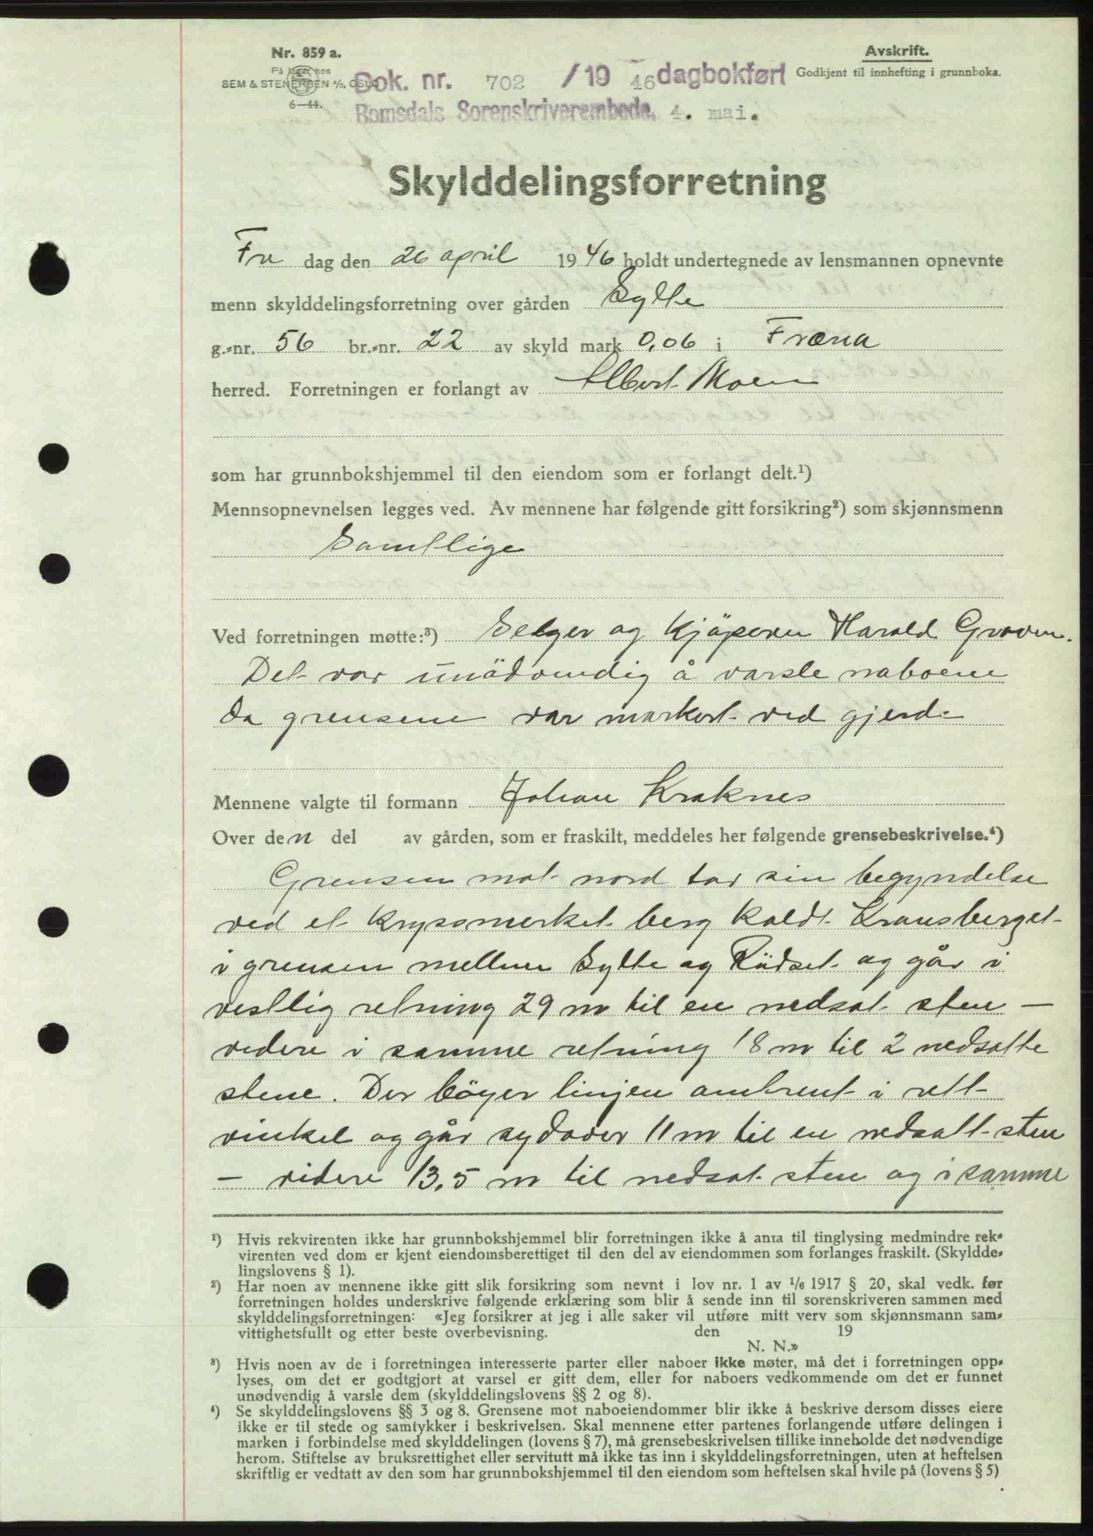 Nr. 859 a.
På lager hos
SEM & STENERSEN A/S, OSLO
6—44.
Avskrift.
Godkjent til innhefting i grunnboka.
Dok. nr. 702 /19 46 dagbokført
Romsdals Sorenskriverembede, 4. mai.
Skylddelingsforretning
Fre dag den 26 april 1946 holdt undertegnede av lensmannen opnevnte
menn skylddelingsforretning over gården Sylte
g.-nr. 56 br.-nr. 22 av skyld mark 0,06 i Fræna
herred. Forretningen er forlangt av Albert Moen
som har grunnbokshjemmel til den eiendom som er forlangt delt.¹)
Mennsopnevnelsen legges ved. Av mennene har følgende gitt forsikring²) som skjønnsmenn
Samtlige
Ved forretningen møtte:³) Selger og kjøperen Harald Groven.
Det var unödvendig å varsle naboene
da grensene var markert ved gjerde
Mennene valgte til formann Johan Kraknes
Over den del av gården, som er fraskilt, meddeles her følgende grensebeskrivelse.⁴)
Grensen mot nord tar sin begyndelse
ved et kryssmerket berg kaldt Kransberget
i grensen mellem Sylte og Rüdset og går i
vestlig retning 29 m til en nedsat sten —
videre i samme retning 18 m til 2 nedsatte
stene. Der böyer linjen omtrent i rett
vinkel og går sydover 11 m til en nedsatt sten
— videre 13,5 m til nedsat sten og i samme
¹) Hvis rekvirenten ikke har grunnbokshjemmel blir forretningen ikke å anta til tinglysing medmindre rek-
virenten ved dom er kjent eiendomsberettiget til den del av eiendommen som forlanges fraskilt. (Skyldde-
lingslovens § 1).
²) Har noen av mennene ikke gitt slik forsikring som nevnt i lov nr. 1 av 1/6 1917 § 20, skal vedk. før
forretningen holdes underskrive følgende erklæring som blir å sende inn til sorenskriveren sammen med
skylddelingsforretningen: «Jeg forsikrer at jeg i alle saker vil utføre mitt verv som skjønnsmann sam-
vittighetsfullt og etter beste overbevisning. den 19
N. N.»
³) Hvis noen av de i forretningen interesserte parter eller naboer ikke møter, må det i forretningen opp-
lyses, om det er godtgjort at varsel er gitt dem, eller for naboers vedkommende om det er funnet
unødvendig å varsle dem (skylddelingslovens §§ 2 og 8).
⁴) Se skylddelingslovens §§ 3 og 8. Grensene mot naboeiendommer blir ikke å beskrive dersom disses eiere
ikke er til stede og samtykker i beskrivelsen. Skal mennene etter partenes forlangende utføre delingen i
marken i forbindelse med skylddelingen (lovens § 7), må grensebeskrivelsen tillike inneholde det nødvendige
herom. Stiftelse av bruksrettighet eller servitutt må ikke tas inn i skylddelingsforretningen, uten at heftelsen
skriftlig er vedtatt av den som har grunnbokshjemmel til den eiendom som heftelsen skal hvile på (lovens § 5)